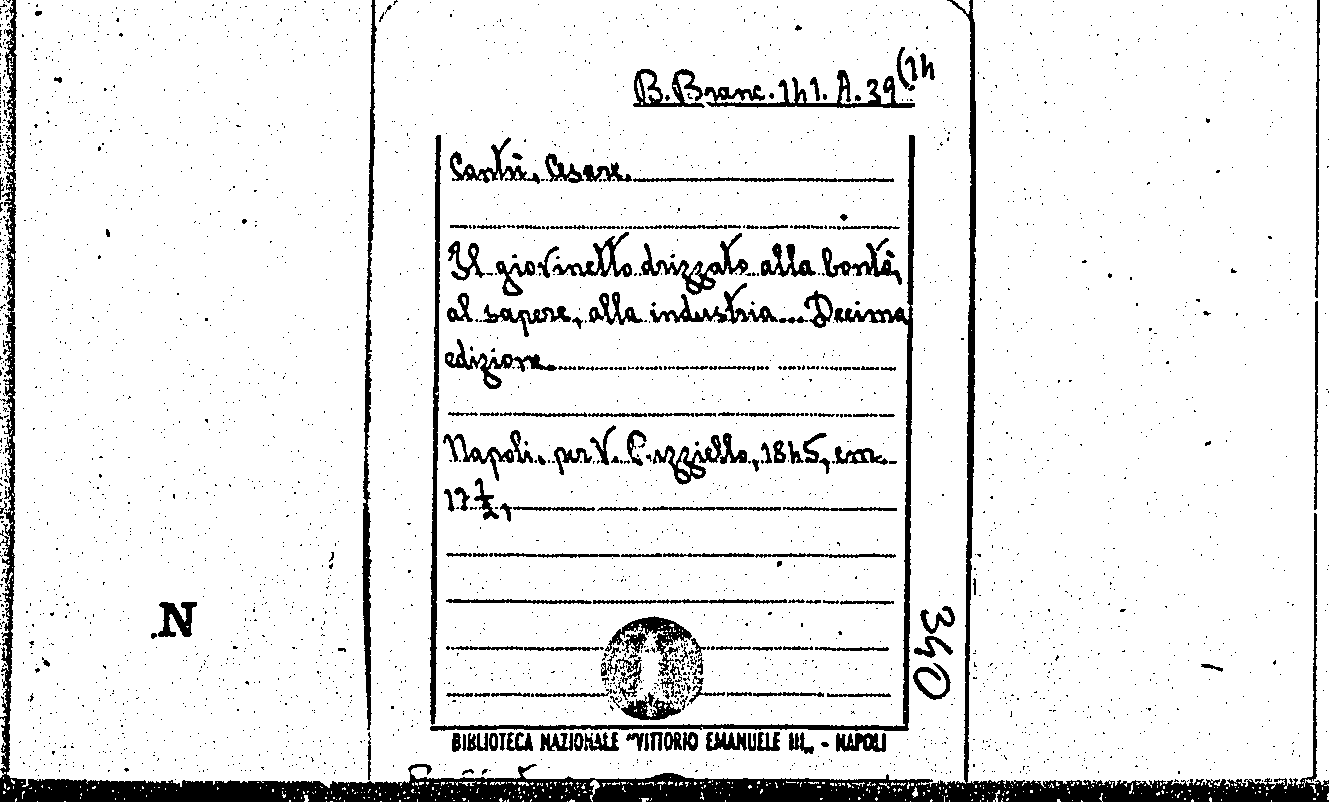 B. Branc. 141. A. 39 (14
Cantù, Cesare.
Il giovinetto drizzato alla bontà,
al sapere, alla industria... Decima
edizione.
Napoli, per V. Puzziello, 1845, cm.
17 1/2,
340
N
BIBLIOTECA NAZIONALE "VITTORIO EMANUELE III" - NAPOLI